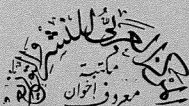 المركز العربي للنشر والتوزيع
مكتبة
معروف اخوان